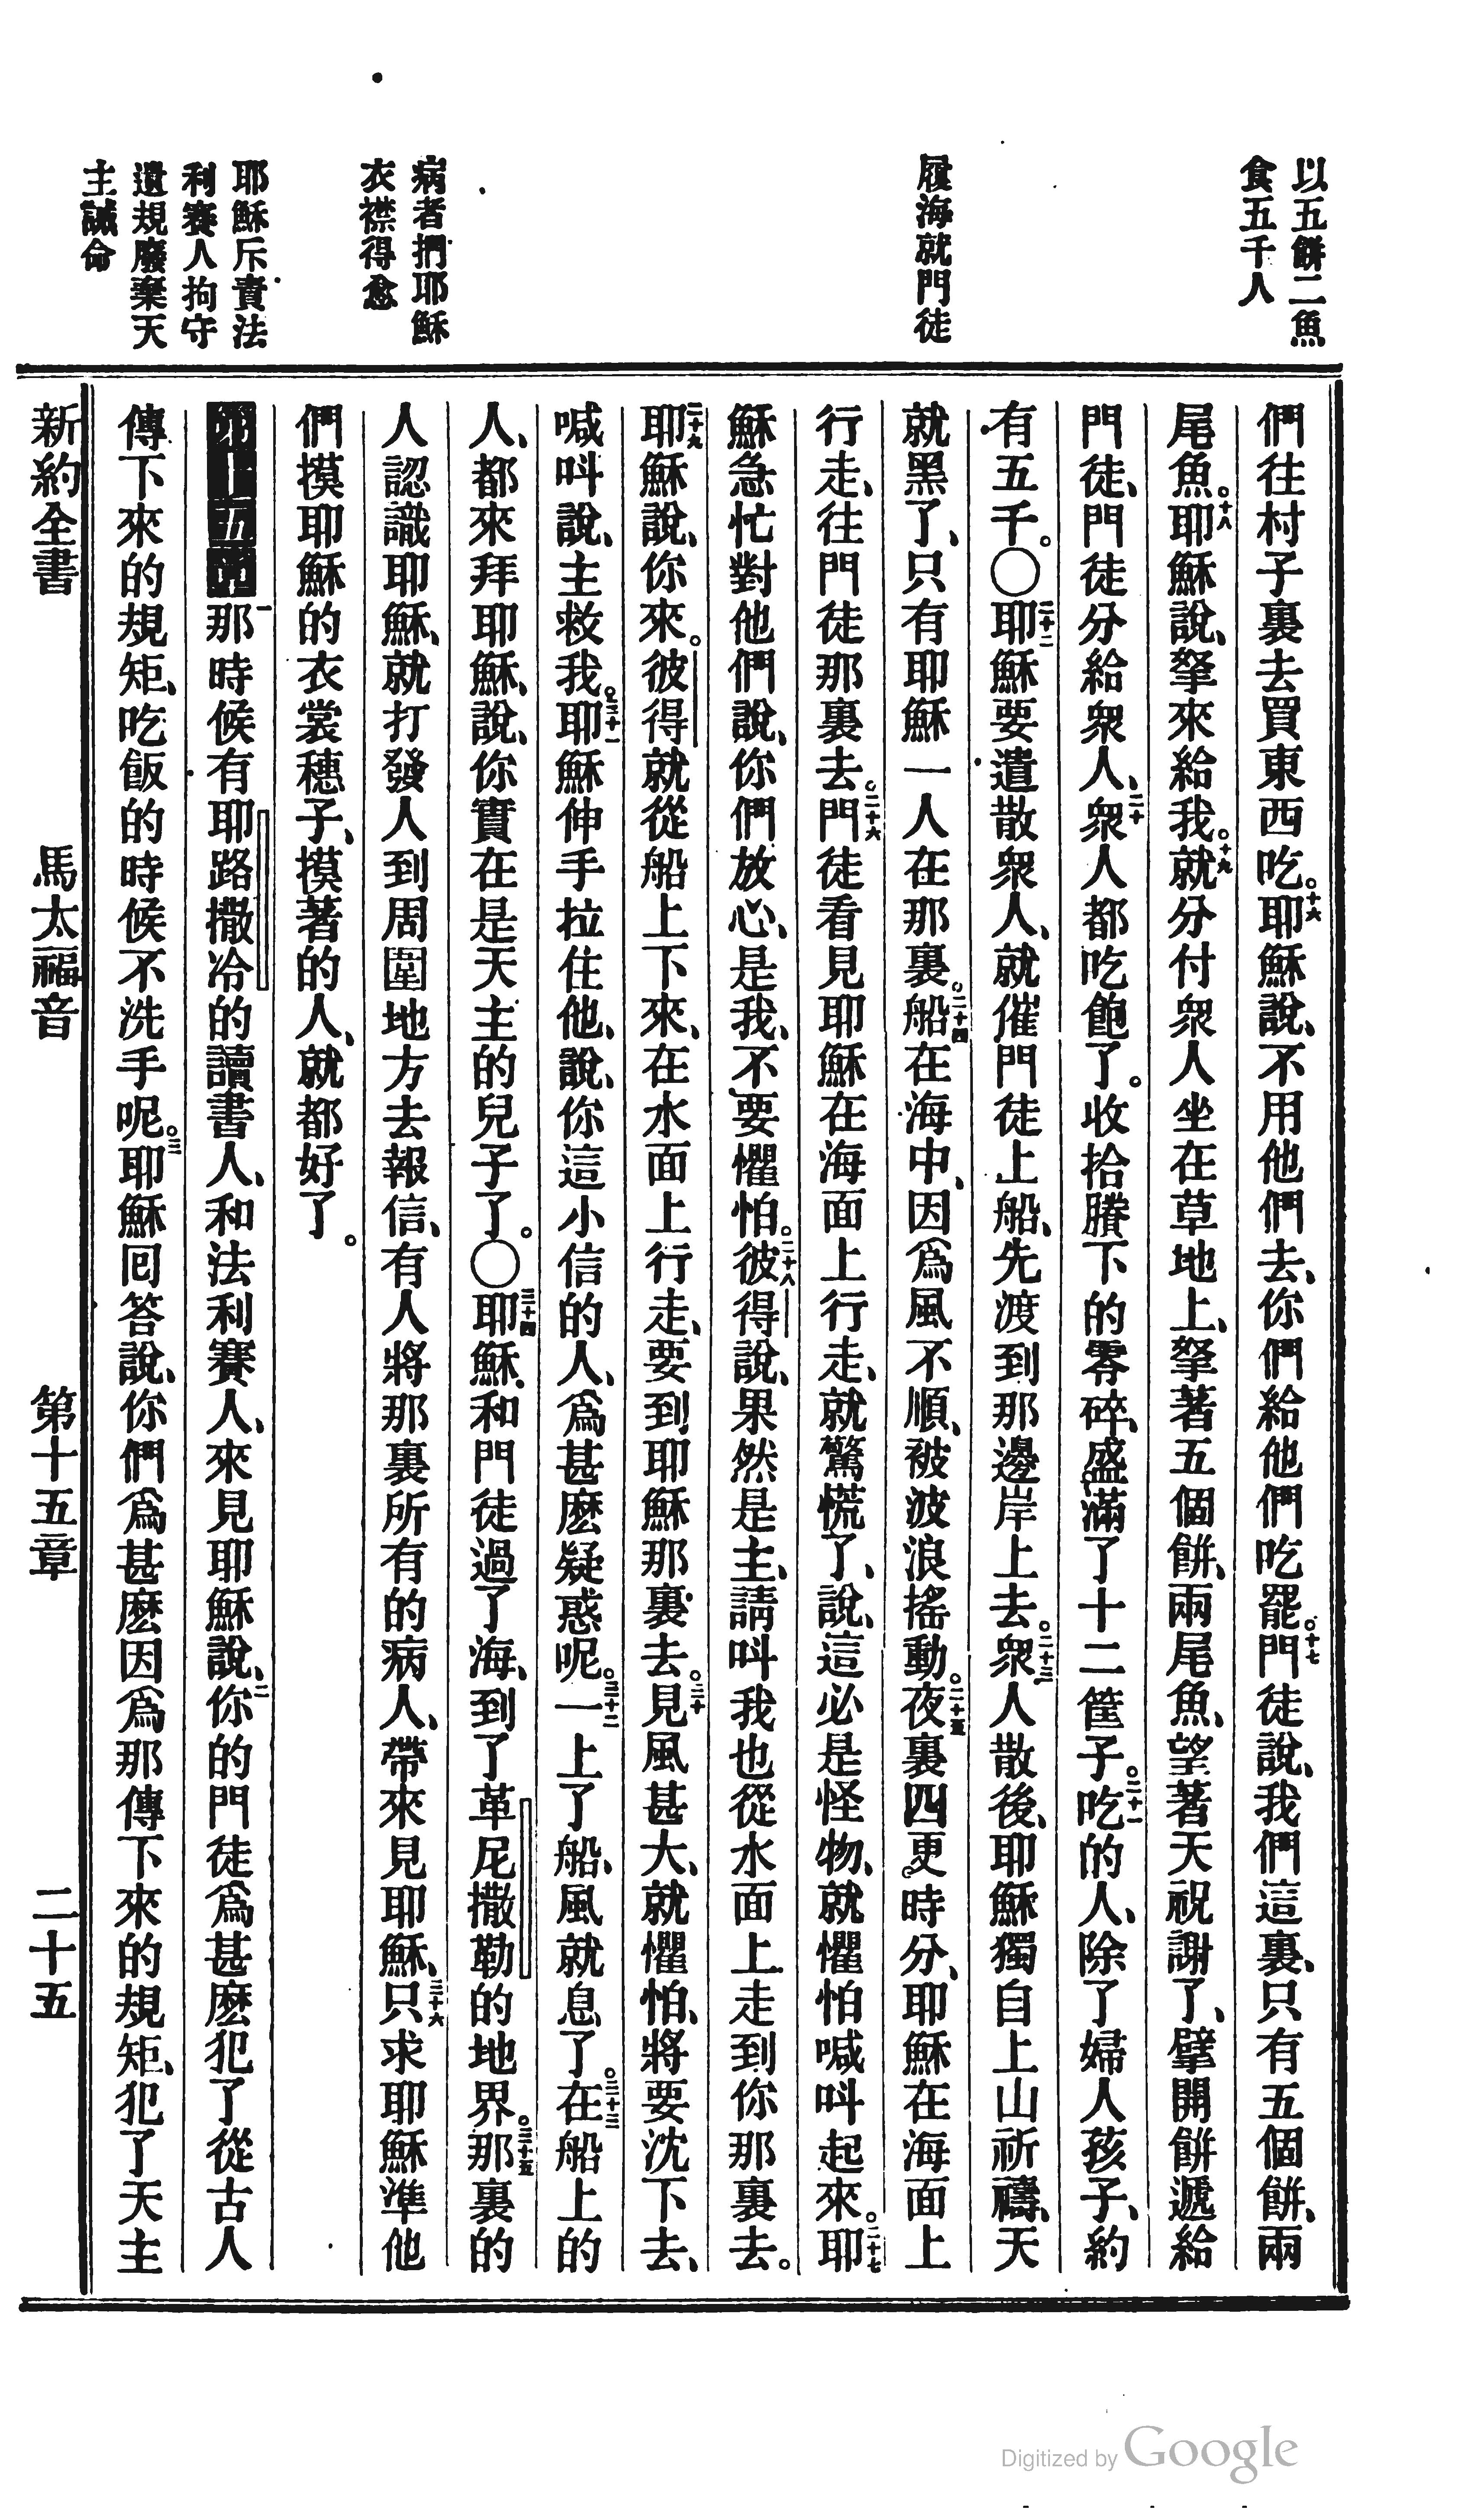 以五餅二魚
食五千人
履海就門徒
病者捫耶穌
衣襟得愈
耶穌斥責法
利賽人拘守
遺規廢棄天
主誡命
們往村子裏去買東西吃。十六耶穌說、不用他們去、你們給他們吃罷。十七門徒說、我們這裏、只有五個餅、兩
尾魚。十八耶穌說、拏來給我。十九就分付衆人坐在草地上、拏著五個餅、兩尾魚、望著天祝謝了、擘開餅遞給
門徒、門徒分給衆人、二十衆人都吃飽了。收拾賸下的零碎、盛滿了十二筐子。二十一吃的人、除了婦人孩子、約
有五千。〇二十二耶穌要遣散衆人、就催門徒上船、先渡到那邊岸上去。二十三衆人散後、耶穌獨自上山祈禱、天
就黑了、只有耶穌一人在那裏。二十四船在海中、因爲風不順、被波浪搖動。二十五夜裏四更時分、耶穌在海面上
行走、往門徒那裏去。二十六門徒看見耶穌在海面上行走、就驚慌了、說、這必是怪物、就懼怕喊叫起來。二十七耶
穌急忙對他們說、你們放心、是我、不要懼怕。二十八彼得說、果然是主、請叫我也從水面上走到你那裏去。
二十九耶穌說、你來。彼得就從船上下來、在水面上行走、要到耶穌那裏去。三十見風甚大、就懼怕、將要沈下去、
喊叫說、主救我。三十一耶穌伸手拉住他、說、你這小信的人、爲甚麽疑惑呢。三十二一上了船、風就息了。三十三在船上的
人、都來拜耶穌、說、你實在是天主的兒子了。〇三十四耶穌和門徒過了海、到了革尼撒勒的地界。三十五那裏的
人認識耶穌、就打發人到周圍地方去報信、有人將那裏所有的病人、帶來見耶穌、三十六只求耶穌準他
們摸耶穌的衣裳穗子、摸著的人、就都好了。
第十五章一那時候有耶路撒冷的讀書人、和法利賽人、來見耶穌說、二你的門徒爲甚麽犯了從古人
傳下來的規矩、吃飯的時候不洗手呢。三耶穌回答說、你們爲甚麽因爲那傳下來的規矩、犯了天主
新約全書 馬太福音 第十五章 二十五
Digitized by Google